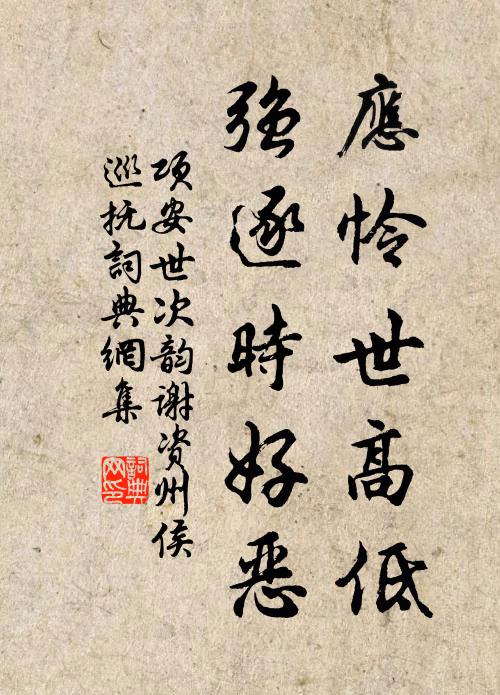 應怜世高低
強逐時好惡
项安世次韵谢资州侯
巡抚詞典網集
詞典
网印